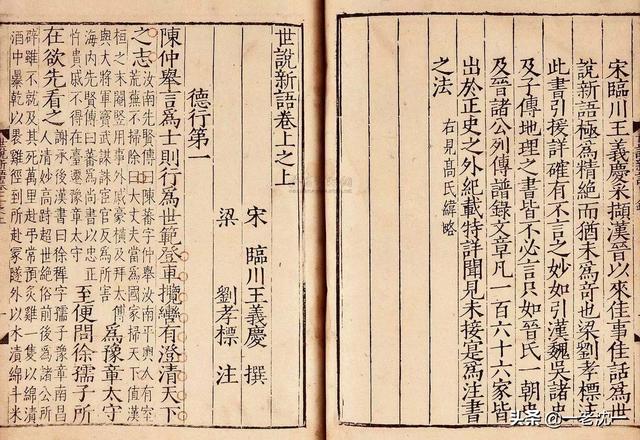 宋臨川王義慶采擷漢晉以來佳事佳話為世
說新語極為精絕而猶未為奇也梁劉孝標注
此書引援詳確有不言之妙如引漢魏吳諸史
及子傳地理之書皆不必言只如晉氏一朝史
及晉諸公列傳譜錄文章凡一百六十六家皆
出於正史之外紀載特詳聞見未接寔為注書
之法 右見高氏緯略
世說新語卷上之上
宋 臨川王義慶 撰
梁 劉孝標 注
德行第一
陳仲舉言為士則行為世範登車攬轡有澄清天下
之志 汝南先賢傳曰陳蕃字仲舉汝南平輿人有室
荒蕪不掃除曰大丈夫當為國家掃天下值漢
桓之末閹豎用事外戚豪橫及拜太傅
與大將軍竇武謀誅宦官反為所害 為豫章太守
海內先賢傳曰蕃為尚書以忠正
忤貴戚不得在臺遷豫章太守 至便問徐孺子所
在欲先看之 謝承後漢書曰徐穉字孺子豫章南昌
人清妙高跱超世絕俗前後為諸公所
辟雖不就及其死萬里赴弔常預炙雞一隻以綿漬
酒中暴乾以裹雞徑到所赴冢隧外以水漬綿斗米
头条 @一老沈